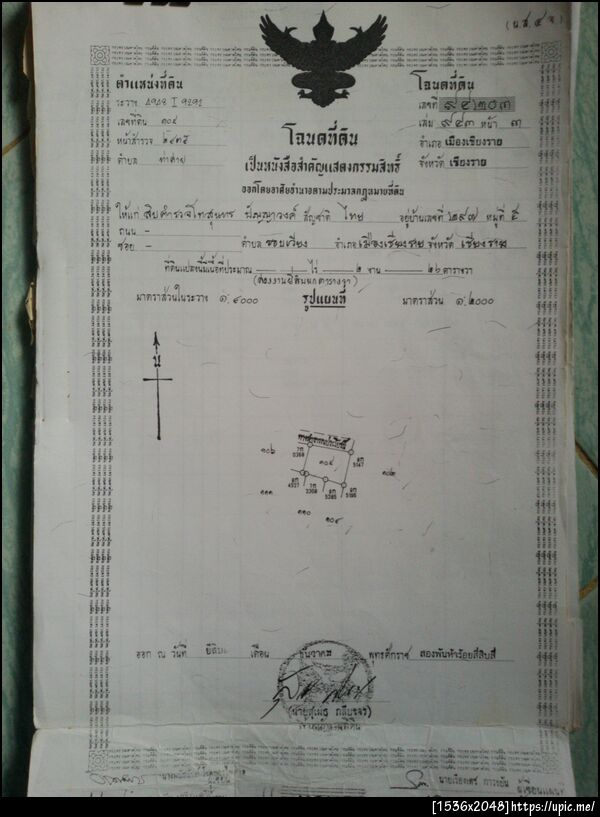 (น.ส. ๔ จ)
ตำแหน่งที่ดิน
ระวาง 4948 I 9292
เลขที่ดิน ๑๐๕
หน้าสำรวจ
ตำบล ท่าสาย
โฉนดที่ดิน
เลขที่ ๙๔๒๐๓
เล่ม ๙๔๓ หน้า ๓
อำเภอ เมืองเชียงราย
จังหวัด เชียงราย
โฉนดที่ดิน
เป็นหนังสือสำคัญแสดงกรรมสิทธิ์
ออกโดยอาศัยอำนาจตามประมวลกฎหมายที่ดิน
ให้แก่ สิบตำรวจโทสุนทร ปัญญาวงค์ สัญชาติ ไทย อยู่บ้านเลขที่ ๒๙๗ หมู่ที่ ๕
ถนน -
ซอย - ตำบล รอบเวียง อำเภอ เมืองเชียงราย จังหวัด เชียงราย
ที่ดินแปลงนี้มีเนื้อที่ประมาณ - ไร่ ๒ งาน ๒๖ ตารางวา
(สองงานยี่สิบหกตารางวา)
มาตราส่วนในระวาง ๑:๔๐๐๐ รูปแผนที่ มาตราส่วน ๑:๒๐๐๐
น
ทางสาธารณประโยชน์
๑๐๖
๑๐๕
๑๑๑
๑๑๐
๑๐๙
ออก ณ วันที่ ยี่สิบ เดือน ธันวาคม พุทธศักราช สองพันห้าร้อยสี่สิบสี่
(นายสุเมธ
เจ้าพนักงานที่ดิน
ผู้เขียนแผนที่
[1536x2048]https://upic.me/